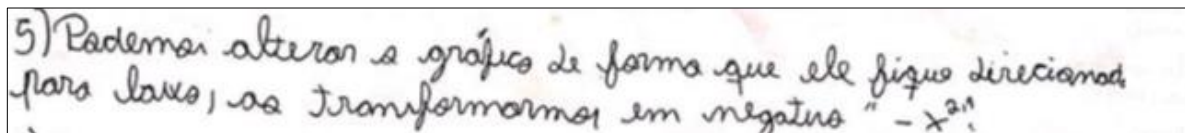 5) Podemos alterar o gráfico de forma que ele fique direcionado
para baixo, ao transformarmos em negativo "-x²".